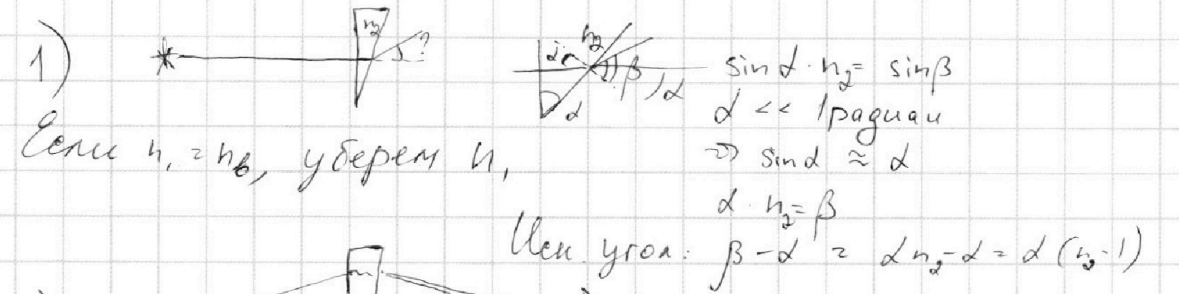 1)
n₂
?
α n₂ β α
α
sinα · n₂ = sinβ
α << 1 радиан
=> sinα ≈ α
α · n₂ = β
Если n₁ = nв, уберем n₁
Иск. угол: β - α = αn₂ - α = α (n₂ - 1)